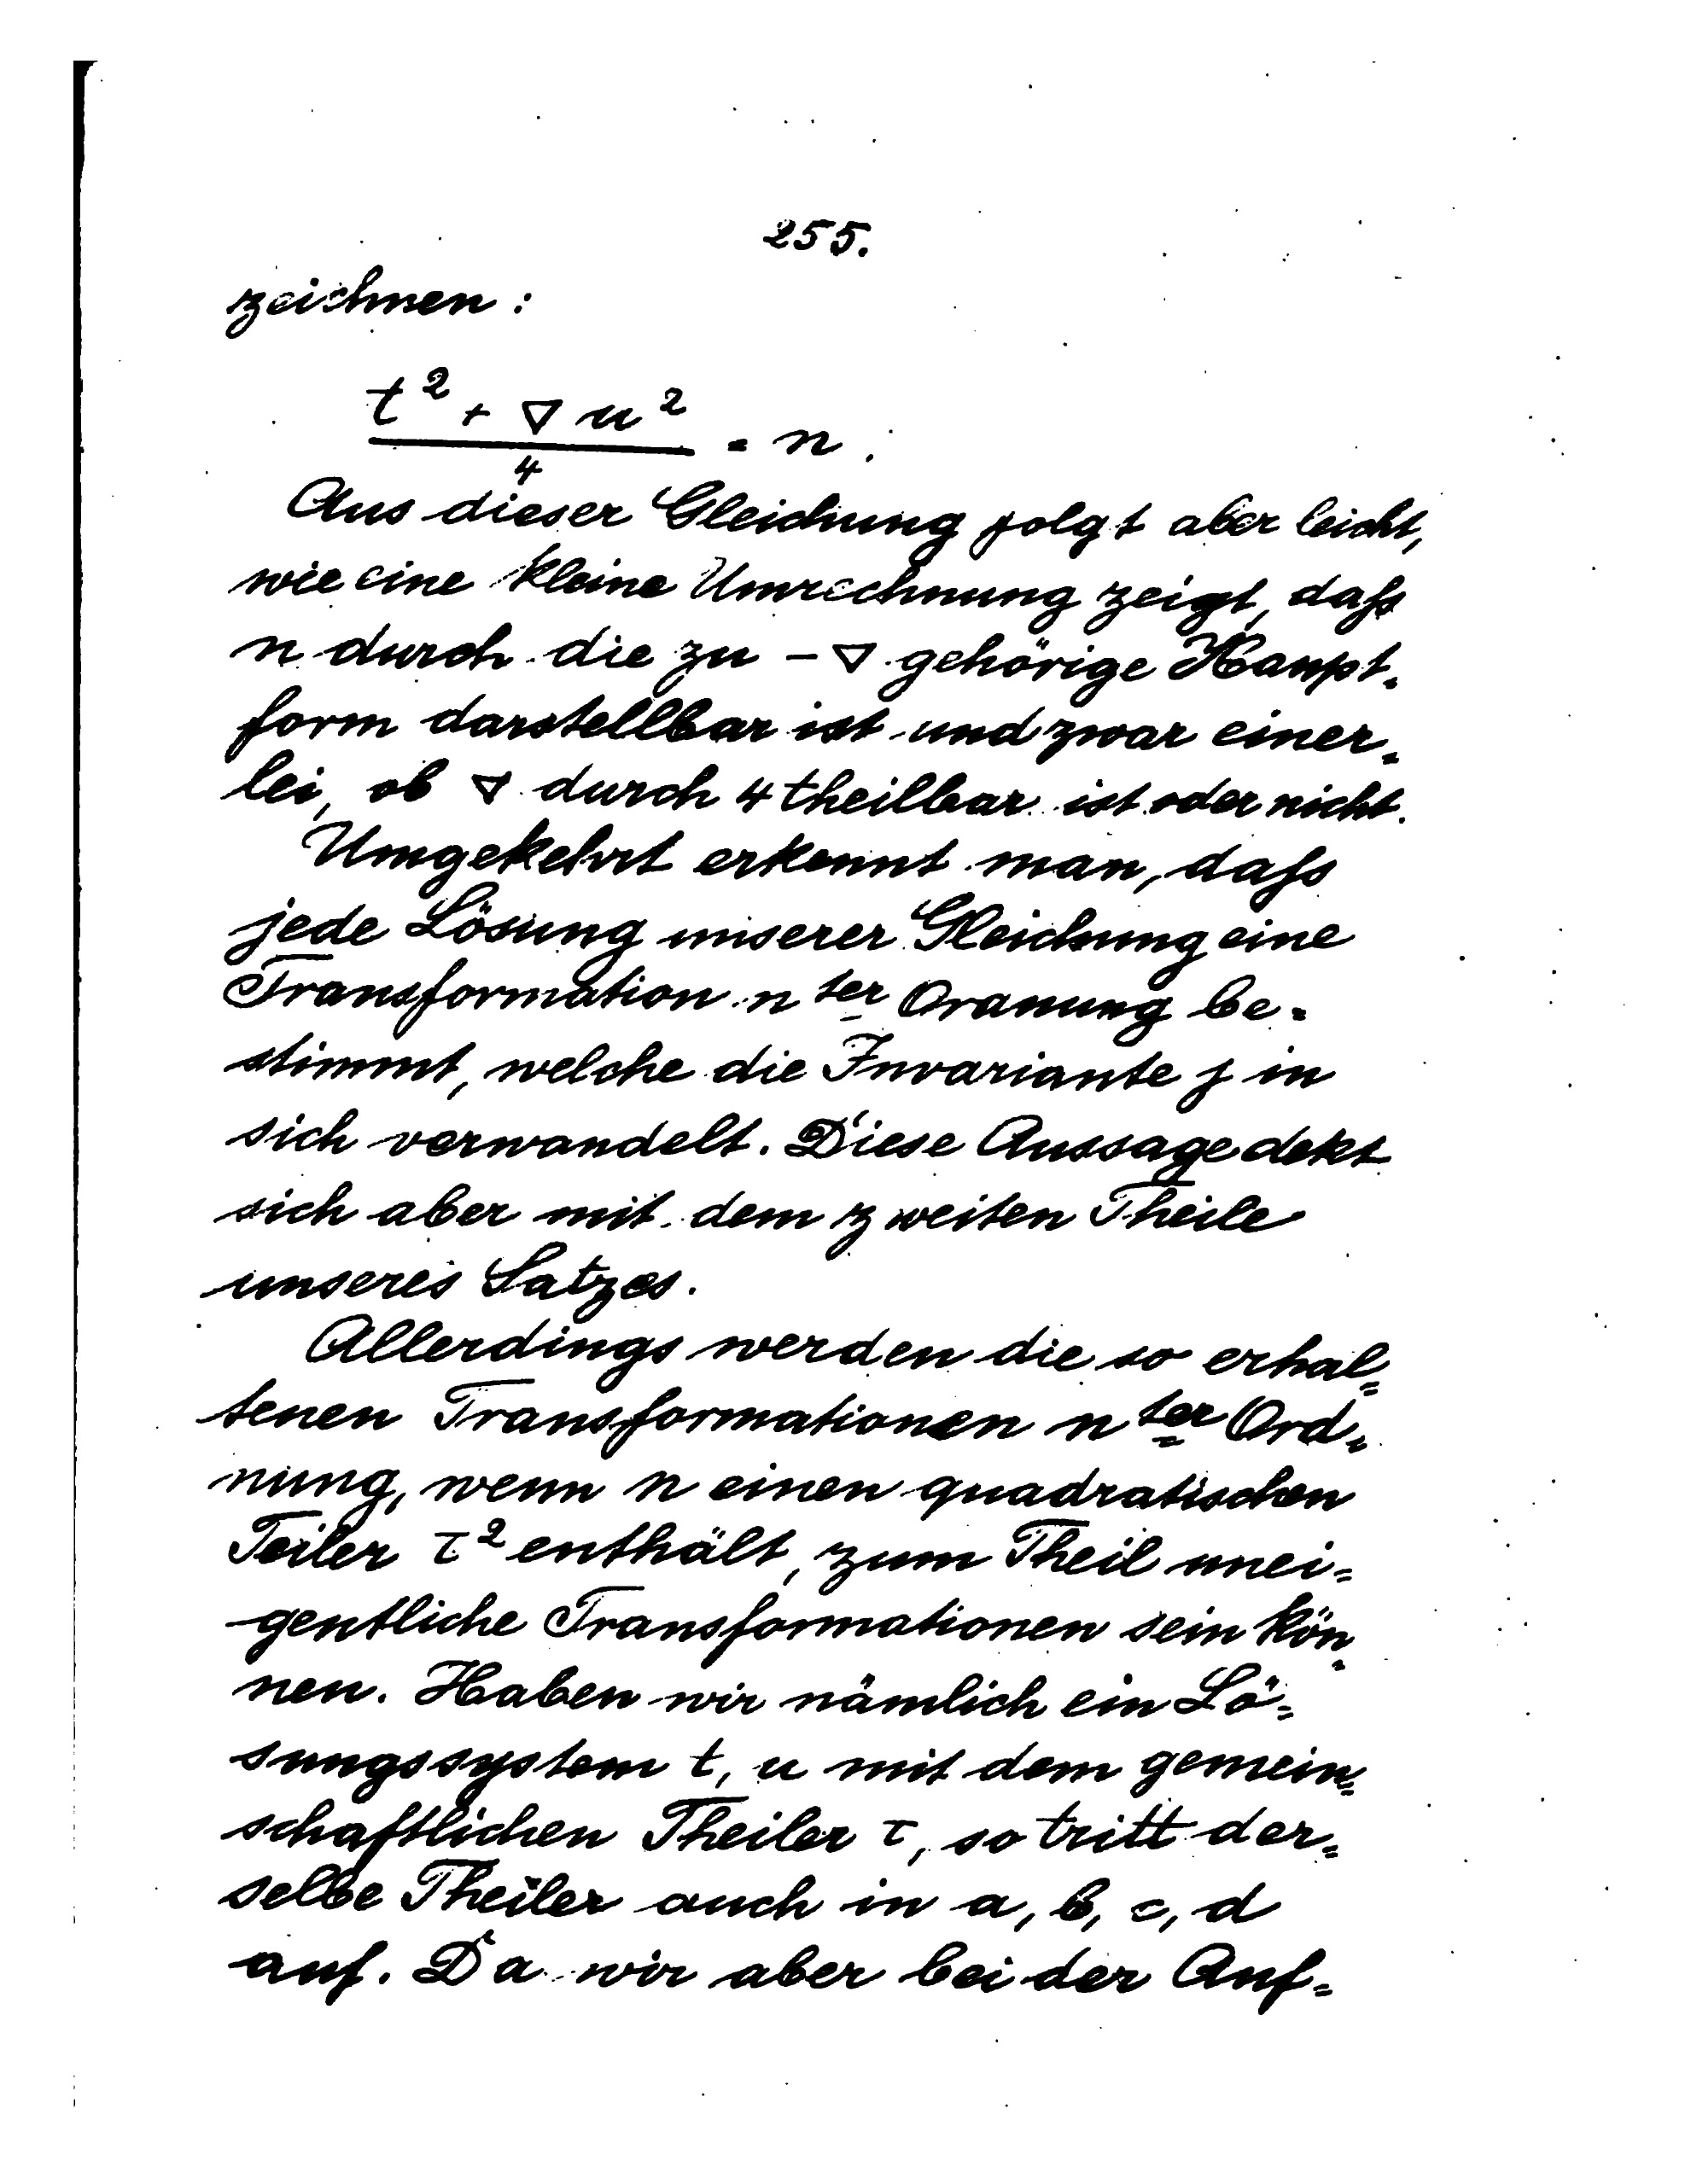 255.
zeichnen:
t² + ∇ u²
4
= n.
Aus dieser Gleichung folgt aber leicht,
wie eine kleine Umrechnung zeigt, daſs
n durch die zu -∇ gehörige Haupt-
form darstellbar ist und zwar einer-
lei, ob ∇ durch 4 theilbar ist oder nicht.
Umgekehrt erkennt man, daſs
jede Lösung unserer Gleichung eine
Transformation n ter Ordnung be-
stimmt, welche die Invariante j in
sich verwandelt. Diese Aussage dekt
sich aber mit dem zweiten Theile
unseres Satzes.
Allerdings werden die so erhal=
tenen Transformationen n ter Ord=
nung, wenn n einen quadratischen
Teiler τ² enthält, zum Theil unei=
gentliche Transformationen sein kön=
nen. Haben wir nämlich ein Lö=
sungssystem t, u mit dem gemein=
schaftlichen Theiler τ, so tritt der=
selbe Theiler auch in a, b, c, d
auf. Da wir aber bei der Auf=